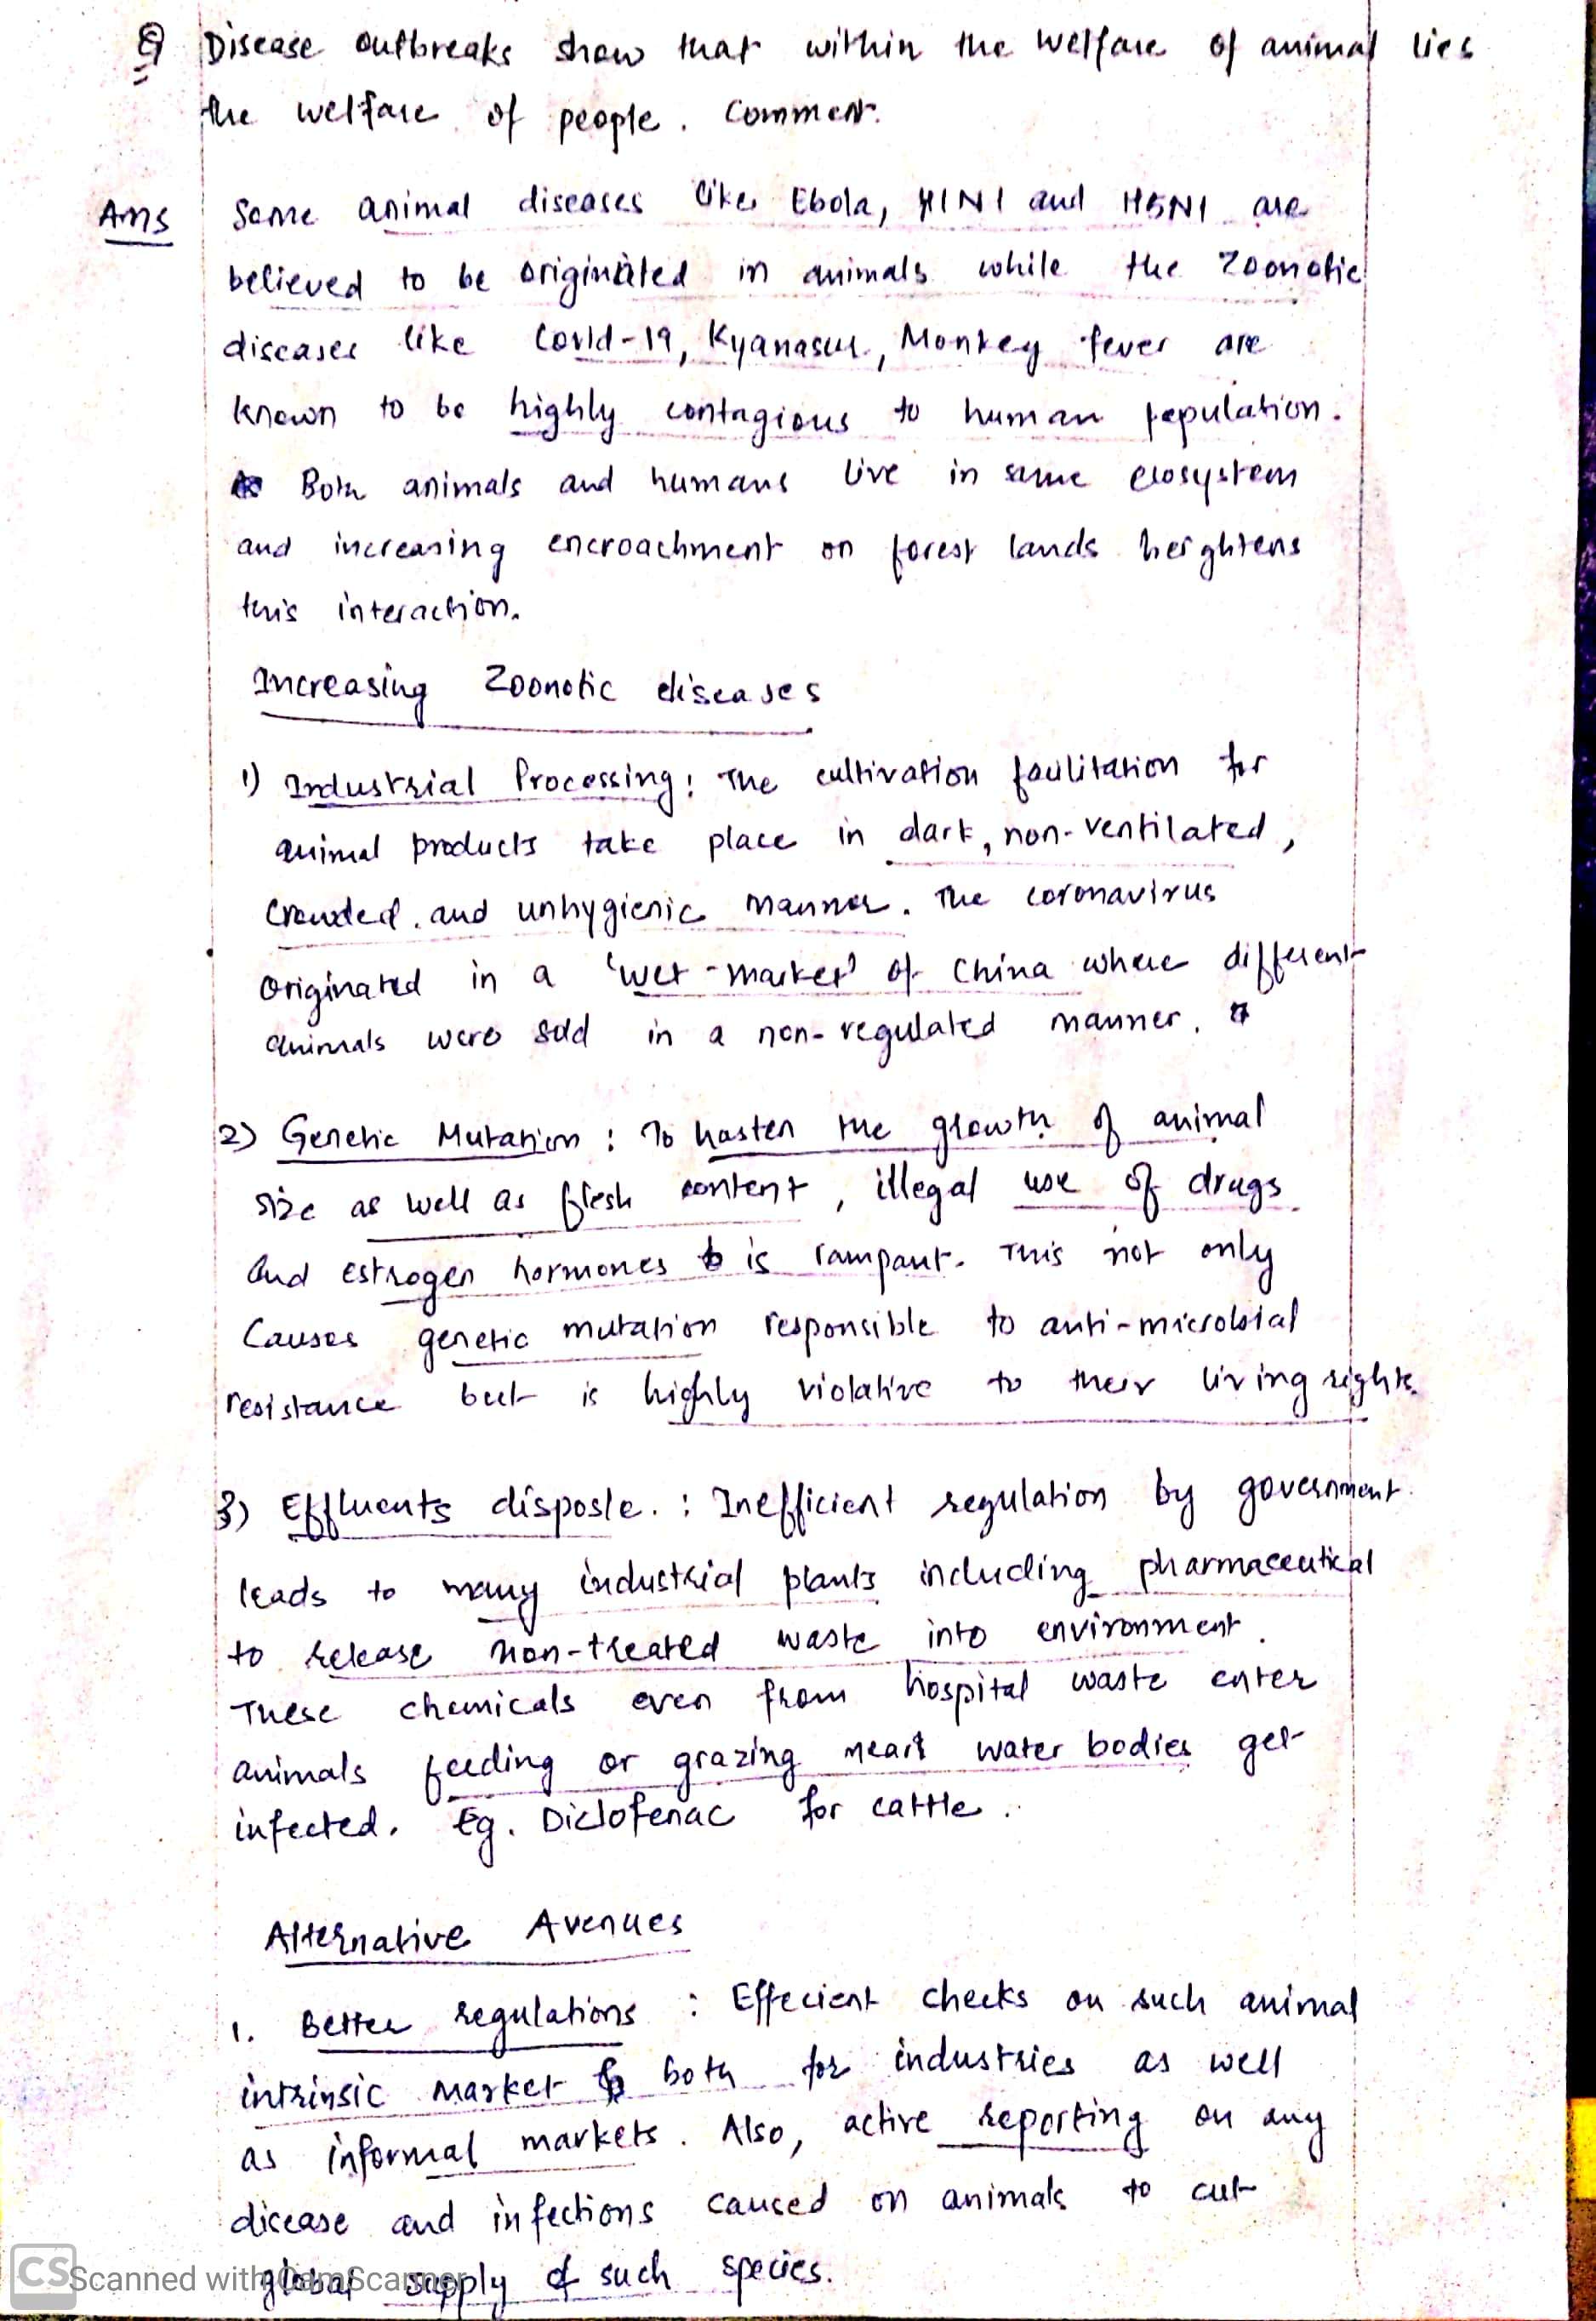 Q Disease outbreaks show that within the welfare of animal lies
the welfare of people. Comment.
Ans Some animal diseases like Ebola, H1N1 and H5N1 are
believed to be originated in animals while the zoonotic
diseases like Covid-19, Kyanasur, Monkey fever are
known to be highly contagious to human population.
Both animals and humans live in same ecosystem
and increasing encroachment on forest lands heightens
this interaction.
Increasing Zoonotic diseases
1) Industrial Processing: The cultivation facilitation for
animal products take place in dark, non-ventilated,
crowded and unhygienic manner. The coronavirus
originated in a 'wet-market' of China where different
animals were sold in a non-regulated manner.
2) Genetic Mutation: To hasten the growth of animal
size as well as flesh content, illegal use of drugs
and estrogen hormones is rampant. This not only
causes genetic mutation responsible to anti-microbial
resistance but is highly violative to their living rights.
3) Effluents disposle.: Inefficient regulation by government
leads to many industrial plants including pharmaceutical
to release non-treated waste into environment.
These chemicals even from hospital waste enter
animals feeding or grazing near water bodies get
infected. Eg. Diclofenac for cattle.
Alternative Avenues
1. Better regulations: Effecient checks on such animal
intrinsic market both for industries as well
as informal markets. Also, active reporting on any
disease and infections caused on animals to cut
global supply of such species.
CS Scanned with CamScanner